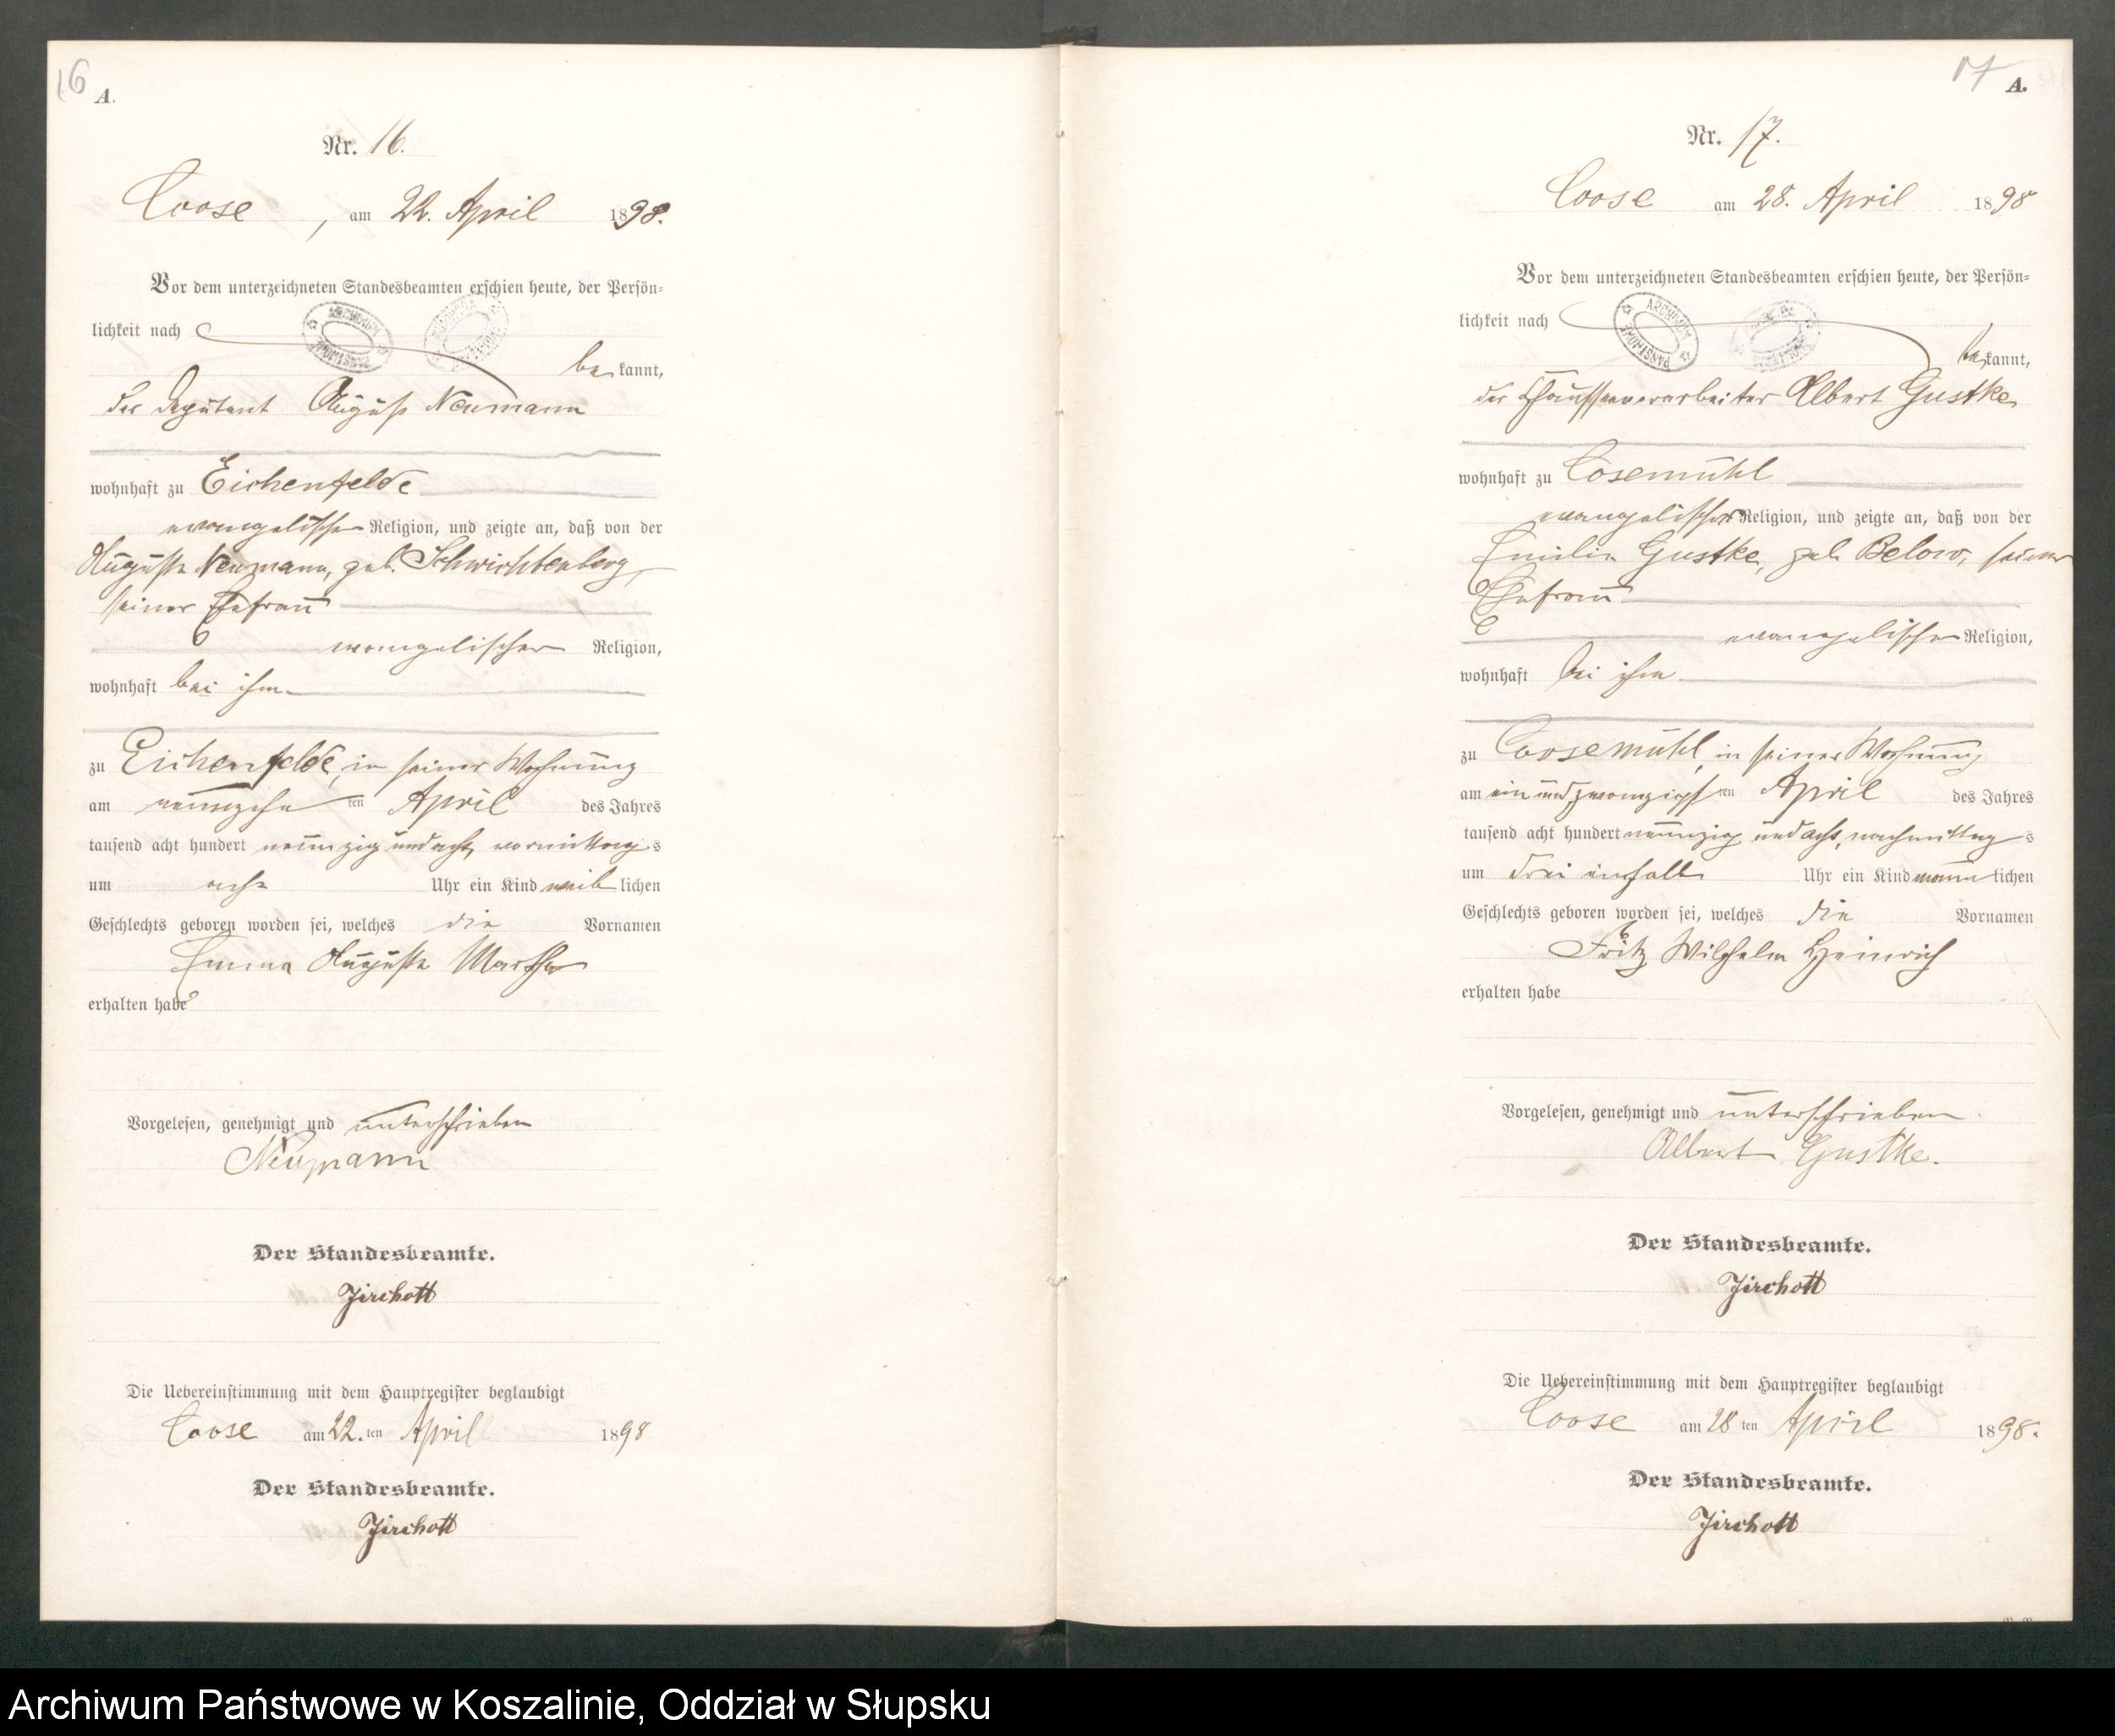 16
A.
Nr. 16.
Coose, am 22. April 1898.
Vor dem unterzeichneten Standesbeamten erschien heute, der Persön-
lichkeit nach
be kannt,
der Deputant August Neumann
wohnhaft zu Eichenfelde
evangelischer Religion, und zeigte an, daß von der
Auguste Neumann, geb. Schwichtenberg,
seiner Ehefrau
evangelischer Religion,
wohnhaft bei ihm
zu Eichenfelde, in seiner Wohnung
am neunzehn ten April des Jahres
tausend acht hundert neunzig und acht, vormittag s
um acht Uhr ein Kind weib lichen
Geschlechts geboren worden sei, welches die Vornamen
Emma Auguste Martha
erhalten habe
Vorgelesen, genehmigt und unterschrieben
Neumann
Der Standesbeamte.
Jirchott
Die Uebereinstimmung mit dem Hauptregister beglaubigt
Coose am 22. ten April 1898
Der Standesbeamte.
Jirchott
17
A.
Nr. 17.
Coose am 28. April 1898
Vor dem unterzeichneten Standesbeamten erschien heute, der Persön-
lichkeit nach
ARCHIWUM PAŃSTWOWE
be kannt,
der Chausseearbeiter Albert Gustke
wohnhaft zu Cosemühl
evangelischer Religion, und zeigte an, daß von der
Emilie Gustke, geb. Below, seiner
Ehefrau
evangelischer Religion,
wohnhaft bei ihm
zu Coosemühl, in seiner Wohnung
am ein und zwanzigst ten April des Jahres
tausend acht hundert neunzig und acht, nachmittag s
um drei einhalb Uhr ein Kind männ lichen
Geschlechts geboren worden sei, welches die Vornamen
Fritz Wilhelm Heinrich
erhalten habe
Vorgelesen, genehmigt und unterschrieben.
Albert Gustke.
Der Standesbeamte.
Jirchott
Die Uebereinstimmung mit dem Hauptregister beglaubigt
Coose am 28 ten April 1898.
Der Standesbeamte.
Jirchott
Archiwum Państwowe w Koszalinie, Oddział w Słupsku